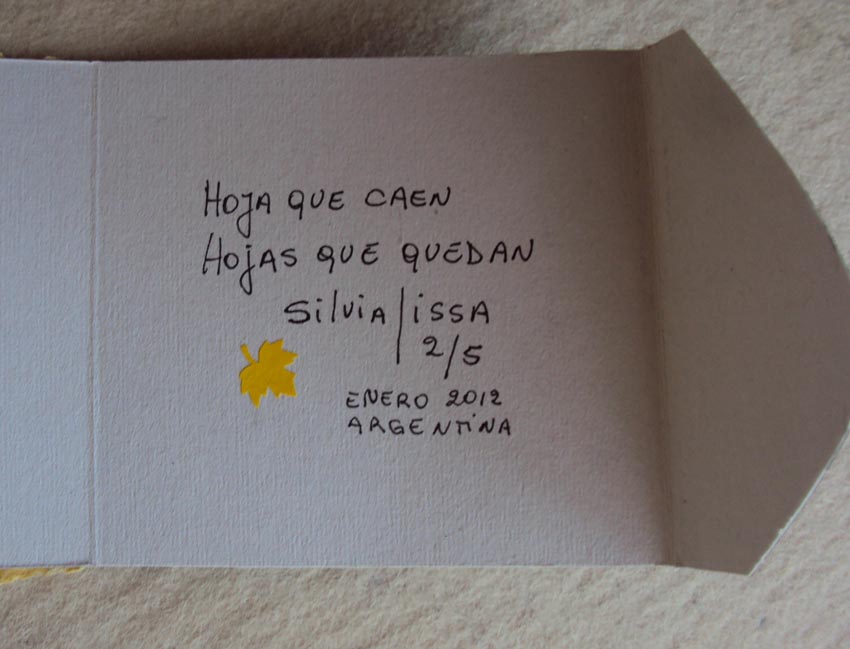 HOJA QUE CAEN
HOJAS QUE QUEDAN
Silvia/issa
2/5
ENERO 2012
ARGENTINA